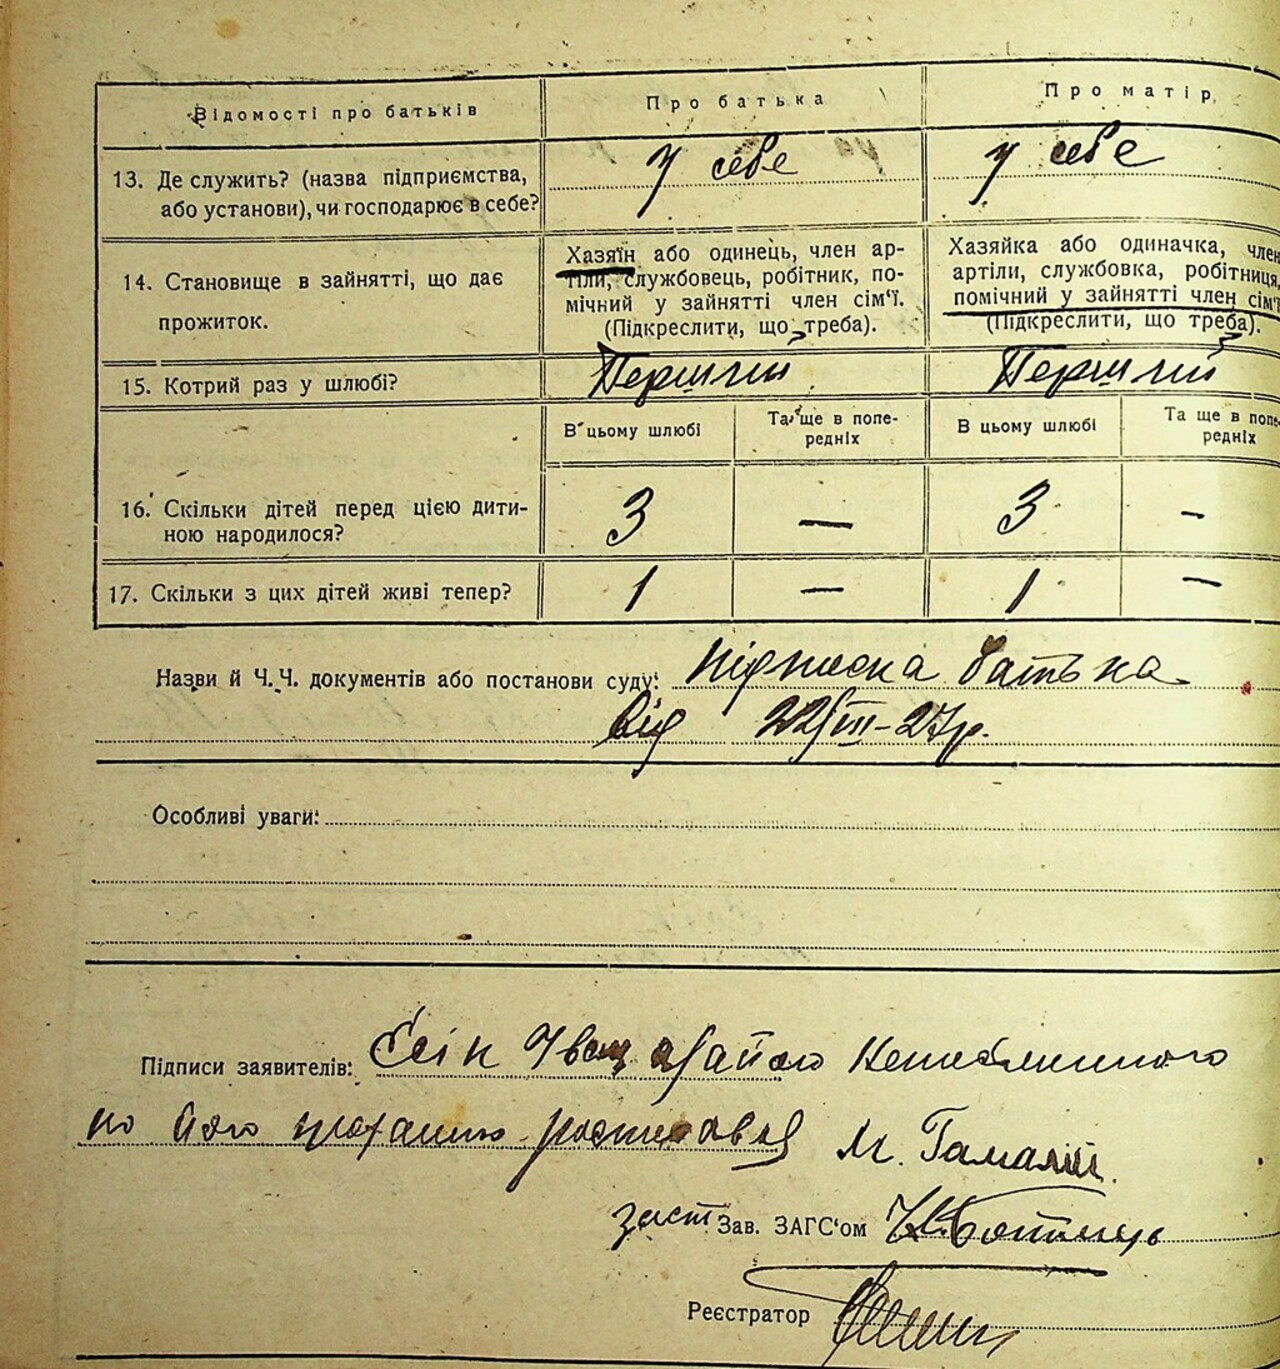 Відомості про батьків
Про батька
Про матір
13. Де служить? (назва підприємства,
або установи), чи господарює в себе?
У себе
У себе
14. Становище в зайнятті, що дає
прожиток.
Хазяїн або одинець, член ар-
тіли, службовець, робітник, по-
мічний у зайнятті член сім'ї.
(Підкреслити, що треба).
Хазяйка або одиначка, член
артіли, службовка, робітниця,
помічний у зайнятті член сім'ї
(Підкреслити, що треба).
15. Котрий раз у шлюбі?
Перший
Перший
В цьому шлюбі
Та ще в попе-
редніх
В цьому шлюбі
Та ще в попе-
редніх
16. Скільки дітей перед цією дити-
ною народилося?
3
—
3
-
17. Скільки з цих дітей живі тепер?
1
—
1
—
Назви й Ч.Ч. документів або постанови суду: Підписка батька
від 22/III-27р.
Особливі уваги:
Підписи заявителів: Єсін Іван
по його М. Гамалій.
заст Зав. ЗАГС'ом
Реєстратор